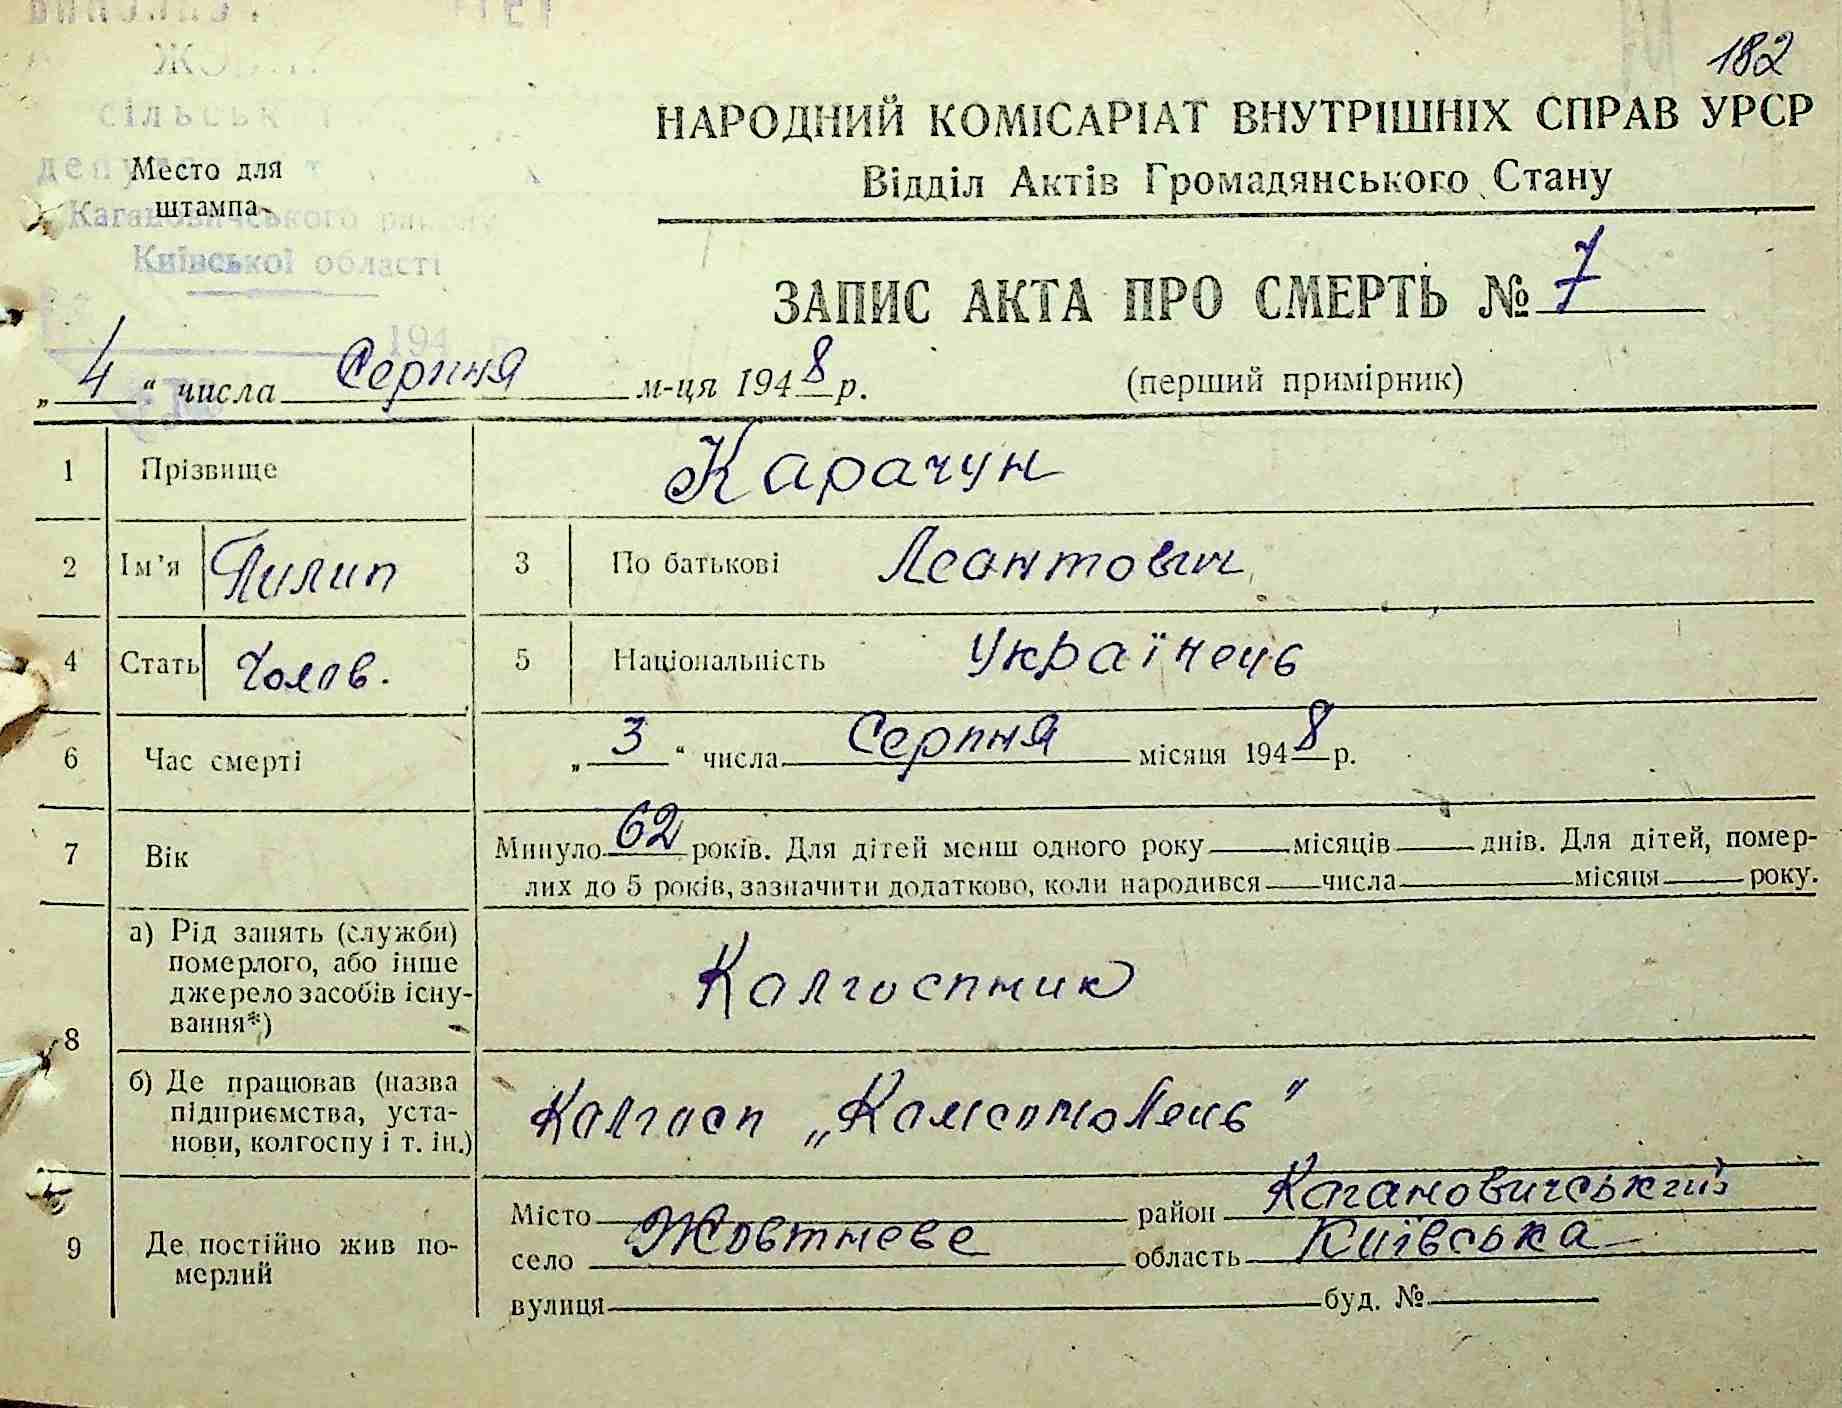 182
сільськ
Место для
штампа
Кагановичського
Київської області
194
НАРОДНИЙ КОМІСАРІАТ ВНУТРІШНІХ СПРАВ УРСР
Відділ Актів Громадянського Стану
ЗАПИС АКТА ПРО СМЕРТЬ № 7
„4“ числа Серпня м-ця 1948 р.
(перший примірник)
1 Прізвище Карачун
2 Ім’я Пилип 3 По батькові Леонтович
4 Стать Чолов. 5 Національність Українець
6 Час смерті „3“ числа Серпня місяця 1948 р.
7 Вік Минуло 62 років. Для дітей менш одного року місяців днів. Для дітей, помер-
лих до 5 років, зазначити додатково, коли народився числа місяця року.
8 а) Рід занять (служби)
померлого, або інше
джерело засобів існу-
вання*)
Колгоспник
б) Де працював (назва
підприємства, уста-
нови, колгоспу і т. ін.)
Колгосп „Комсомолець"
9 Де постійно жив по-
мерлий
Місто район Кагановичський
село Жовтневе область Київська
вулиця буд. №